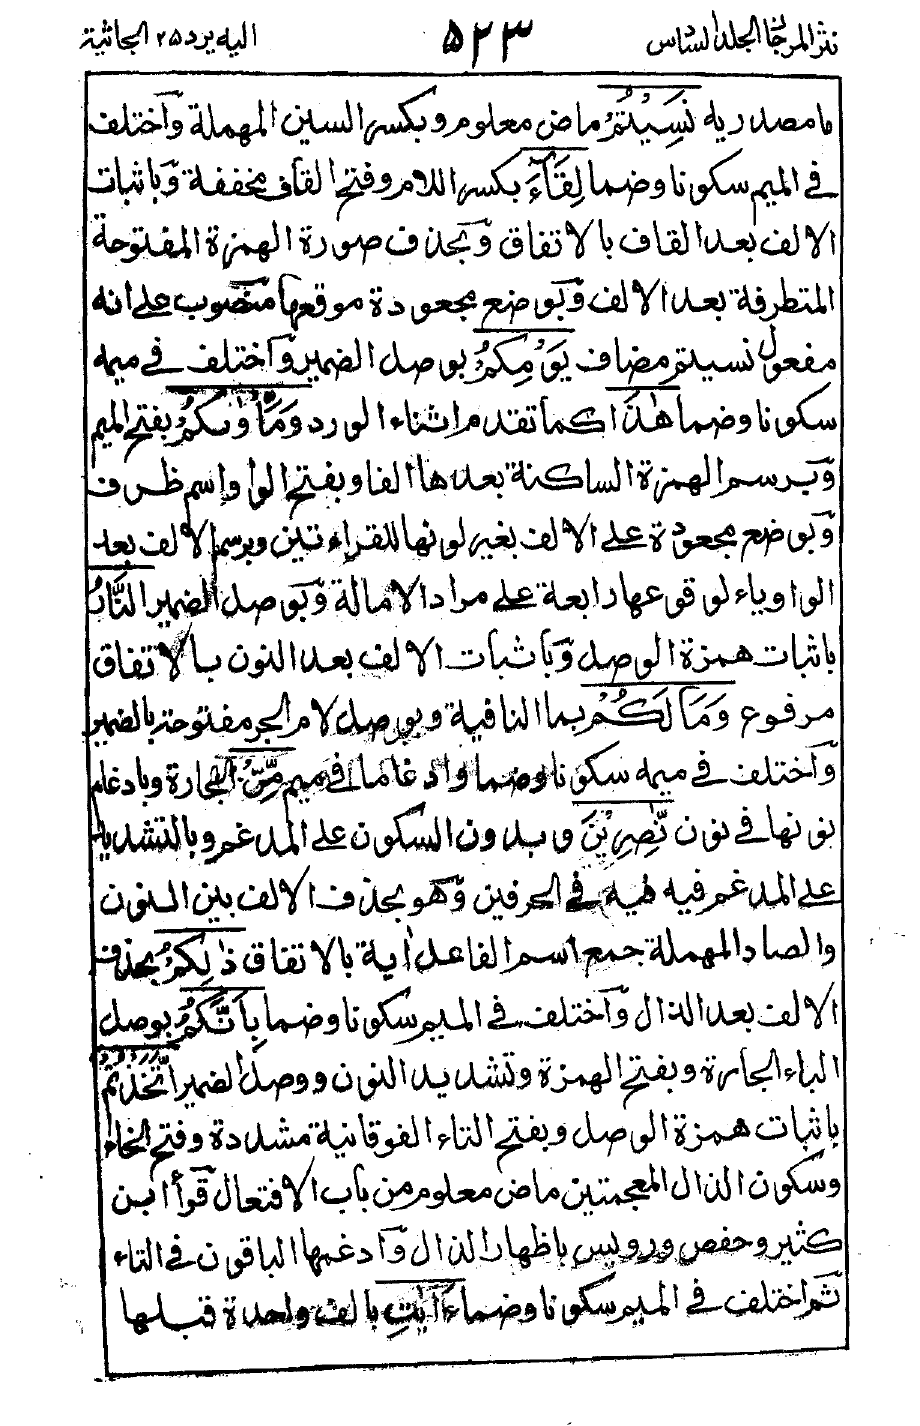 نثر المرجان الجلد السادس ٥٢٣ اليه يرد ٢٥ الجاثية
ما مصدرية نَسِيْتُمْ ماض معلوم وبكسر السين المهملة وآختلف
في الميم سكونا وضما لِقَآءَ بكسر اللام وفتح القاف مخففة وّباثبات
الالف بعد القاف بالاتفاق وّبحذف صورة الهمزة المفتوحة
المتطرفة بعد الالف وّبوضع مجعودة موقعها منصوب على انه
مفعول نسيتم مضاف يَوْمِكُمْ بوصل الضمير وآختلف في ميمه
سكونا وضما هٰذَا كما تقدم اثناء الورد وَمَاْوٰىكُمْ بفتح الميم
وّبرسم الهمزة الساكنة بعدها الفا وبفتح الواو اسم ظرف
وّبوضع مجعودة على الالف بغير لونها للقراءتين وبرسم الالف بعد
الواو ياء لوقوعها رابعة على مراد الامالة وّبوصل الضمير النَّارُ
باثبات همزة الوصل وّبآثبات الالف بعد النون بالاتفاق
مرفوع وَمَا لَكُمْ بما النافية وبوصل لام الجر مفتوحة بالضمير
وآختلف في ميمه سكونا وضما وادغاما في ميم مِّنْ الجارة وبادغام
نونها في نون نّٰصِرِيْنَ وبدون السكون على المدغم وبالتشديد
على المدغم فيه فيه في الحرفين وّهو بحذف الالف بين النون
والصاد المهملة جمع اسم الفاعل اية بالاتفاق ذٰلِكُمْ بحذف
الالف بعد الذال وآختلف في الميم سكونا وضما بِاَنَّكُمُ بوصل
الباء الجارة وبفتح الهمزة وتشديد النون ووصل الضمير اتَّخَذْتُمْ
باثبات همزة الوصل وبفتح التاء الفوقانية مشددة وفتح الخاء
وسكون الذال المعجمتين ماض معلوم من باب الافتعال قرأ ابن
كثير وحفص ورويس باظهار الذال وآدغمها الباقون في التاء
ثم اختلف في الميم سكونا وضما ءَايٰتِ بالف واحدة قبلها